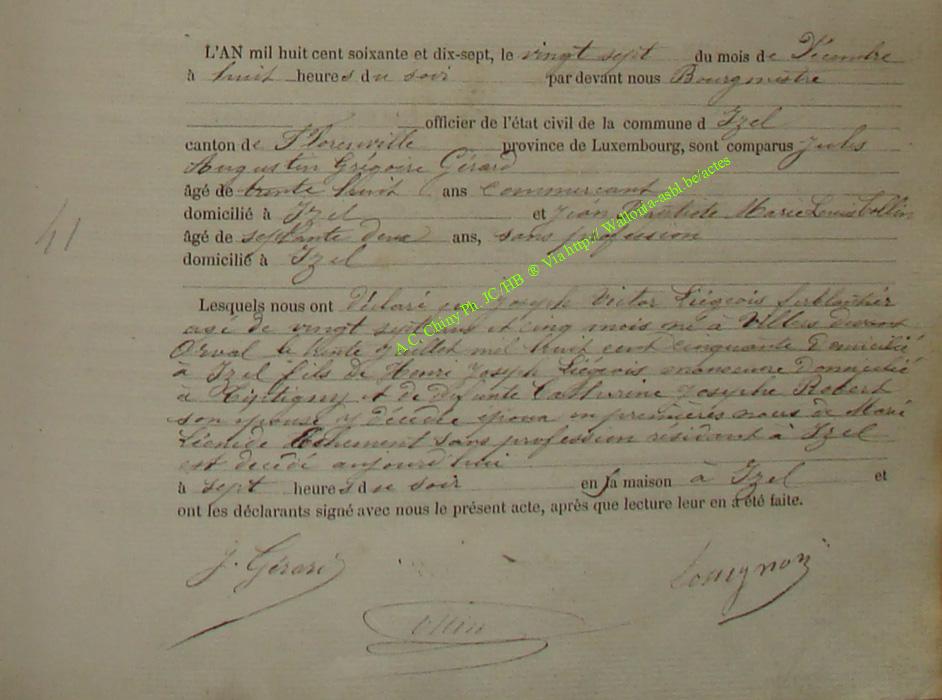 L'AN mil huit cent soixante et dix-sept, le vingt sept du mois de Décembre
à huit heures du soir par devant nous Bourgmestre
officier de l'état civil de la commune d Izel
canton de Florenville province de Luxembourg, sont comparus Jules
Augustin Grégoire Gérard
âgé de trente huit ans commerçant
domicilié à Izel et Jean Baptiste Marie Louis Collin
âgé de septante deux ans, sans profession
domicilié à Izel
41
Lesquels nous ont déclaré que Joseph Victor Liégeois ferblantier
agé de vingt sept ans et cinq mois né à Villers devant
Orval le trente Juillet mil huit cent cinquante Domicilié
à Izel fils de Henri Joseph Liégeois manoeuvre Domicilié
à et de défunte Catherine Josephe Robert
son épouse y décédée époux en premières noces de Marie
sans profession résidant à Izel
est décédé aujourd'hui
à sept heures du soir en sa maison à Izel et
ont les déclarants signé avec nous le présent acte, après que lecture leur en a été faite.
J. Gérard
Collin
A.C. Chiny Ph. JC/HB ® Via http:// Wallonia-asbl.be/actes